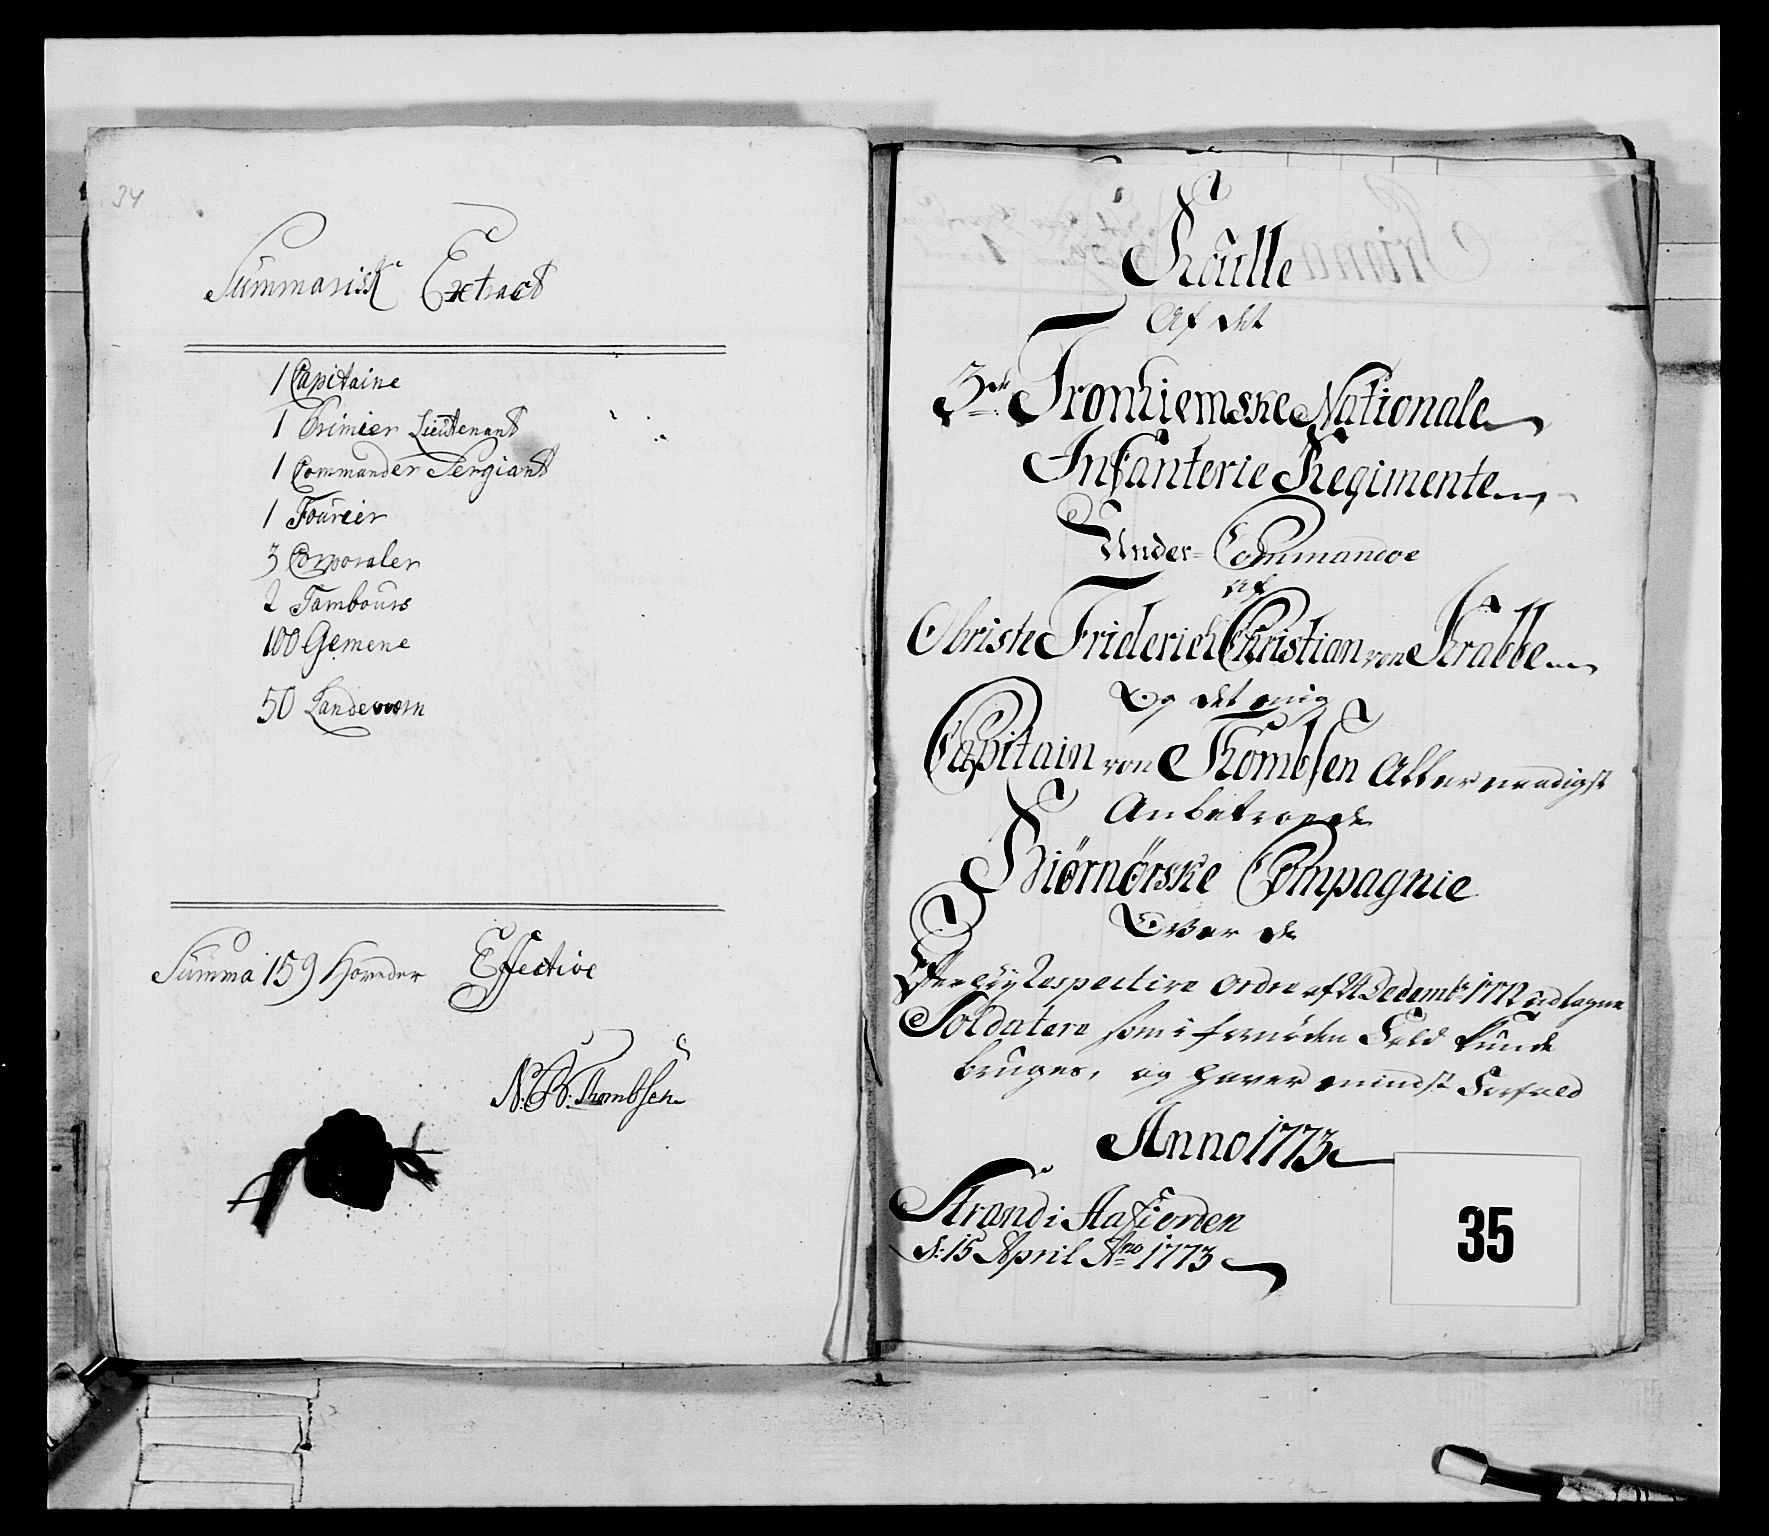 34
Summarisk Extract
1 Capitaine
1 Primier Lieutenant
1 Commander Sergiant
1 Fourier
3 Corporaler
2 Tambours
100 Gemene
50 Landeværn
Summa 159 Hoveder Effective
N: B: Thombsen
Roulle
Af det
3de Tronhiemske Nationale
Infanterie Regimente
Under Commandoe
af
Obriste Friderich Christian von Krabbe
Og det mig
Capitain von Thombsen Allernaadigst
Anbetroede
Biørnørske Compagnie
Over de
Efter høy Respective Ordre af Decembr 1772 udtagne
Soldatere som i Feld kunde
bruges, og haver mindst Forfald
Anno 1773
Strand i Aafiorden
d: 15 April Ano 1773
35